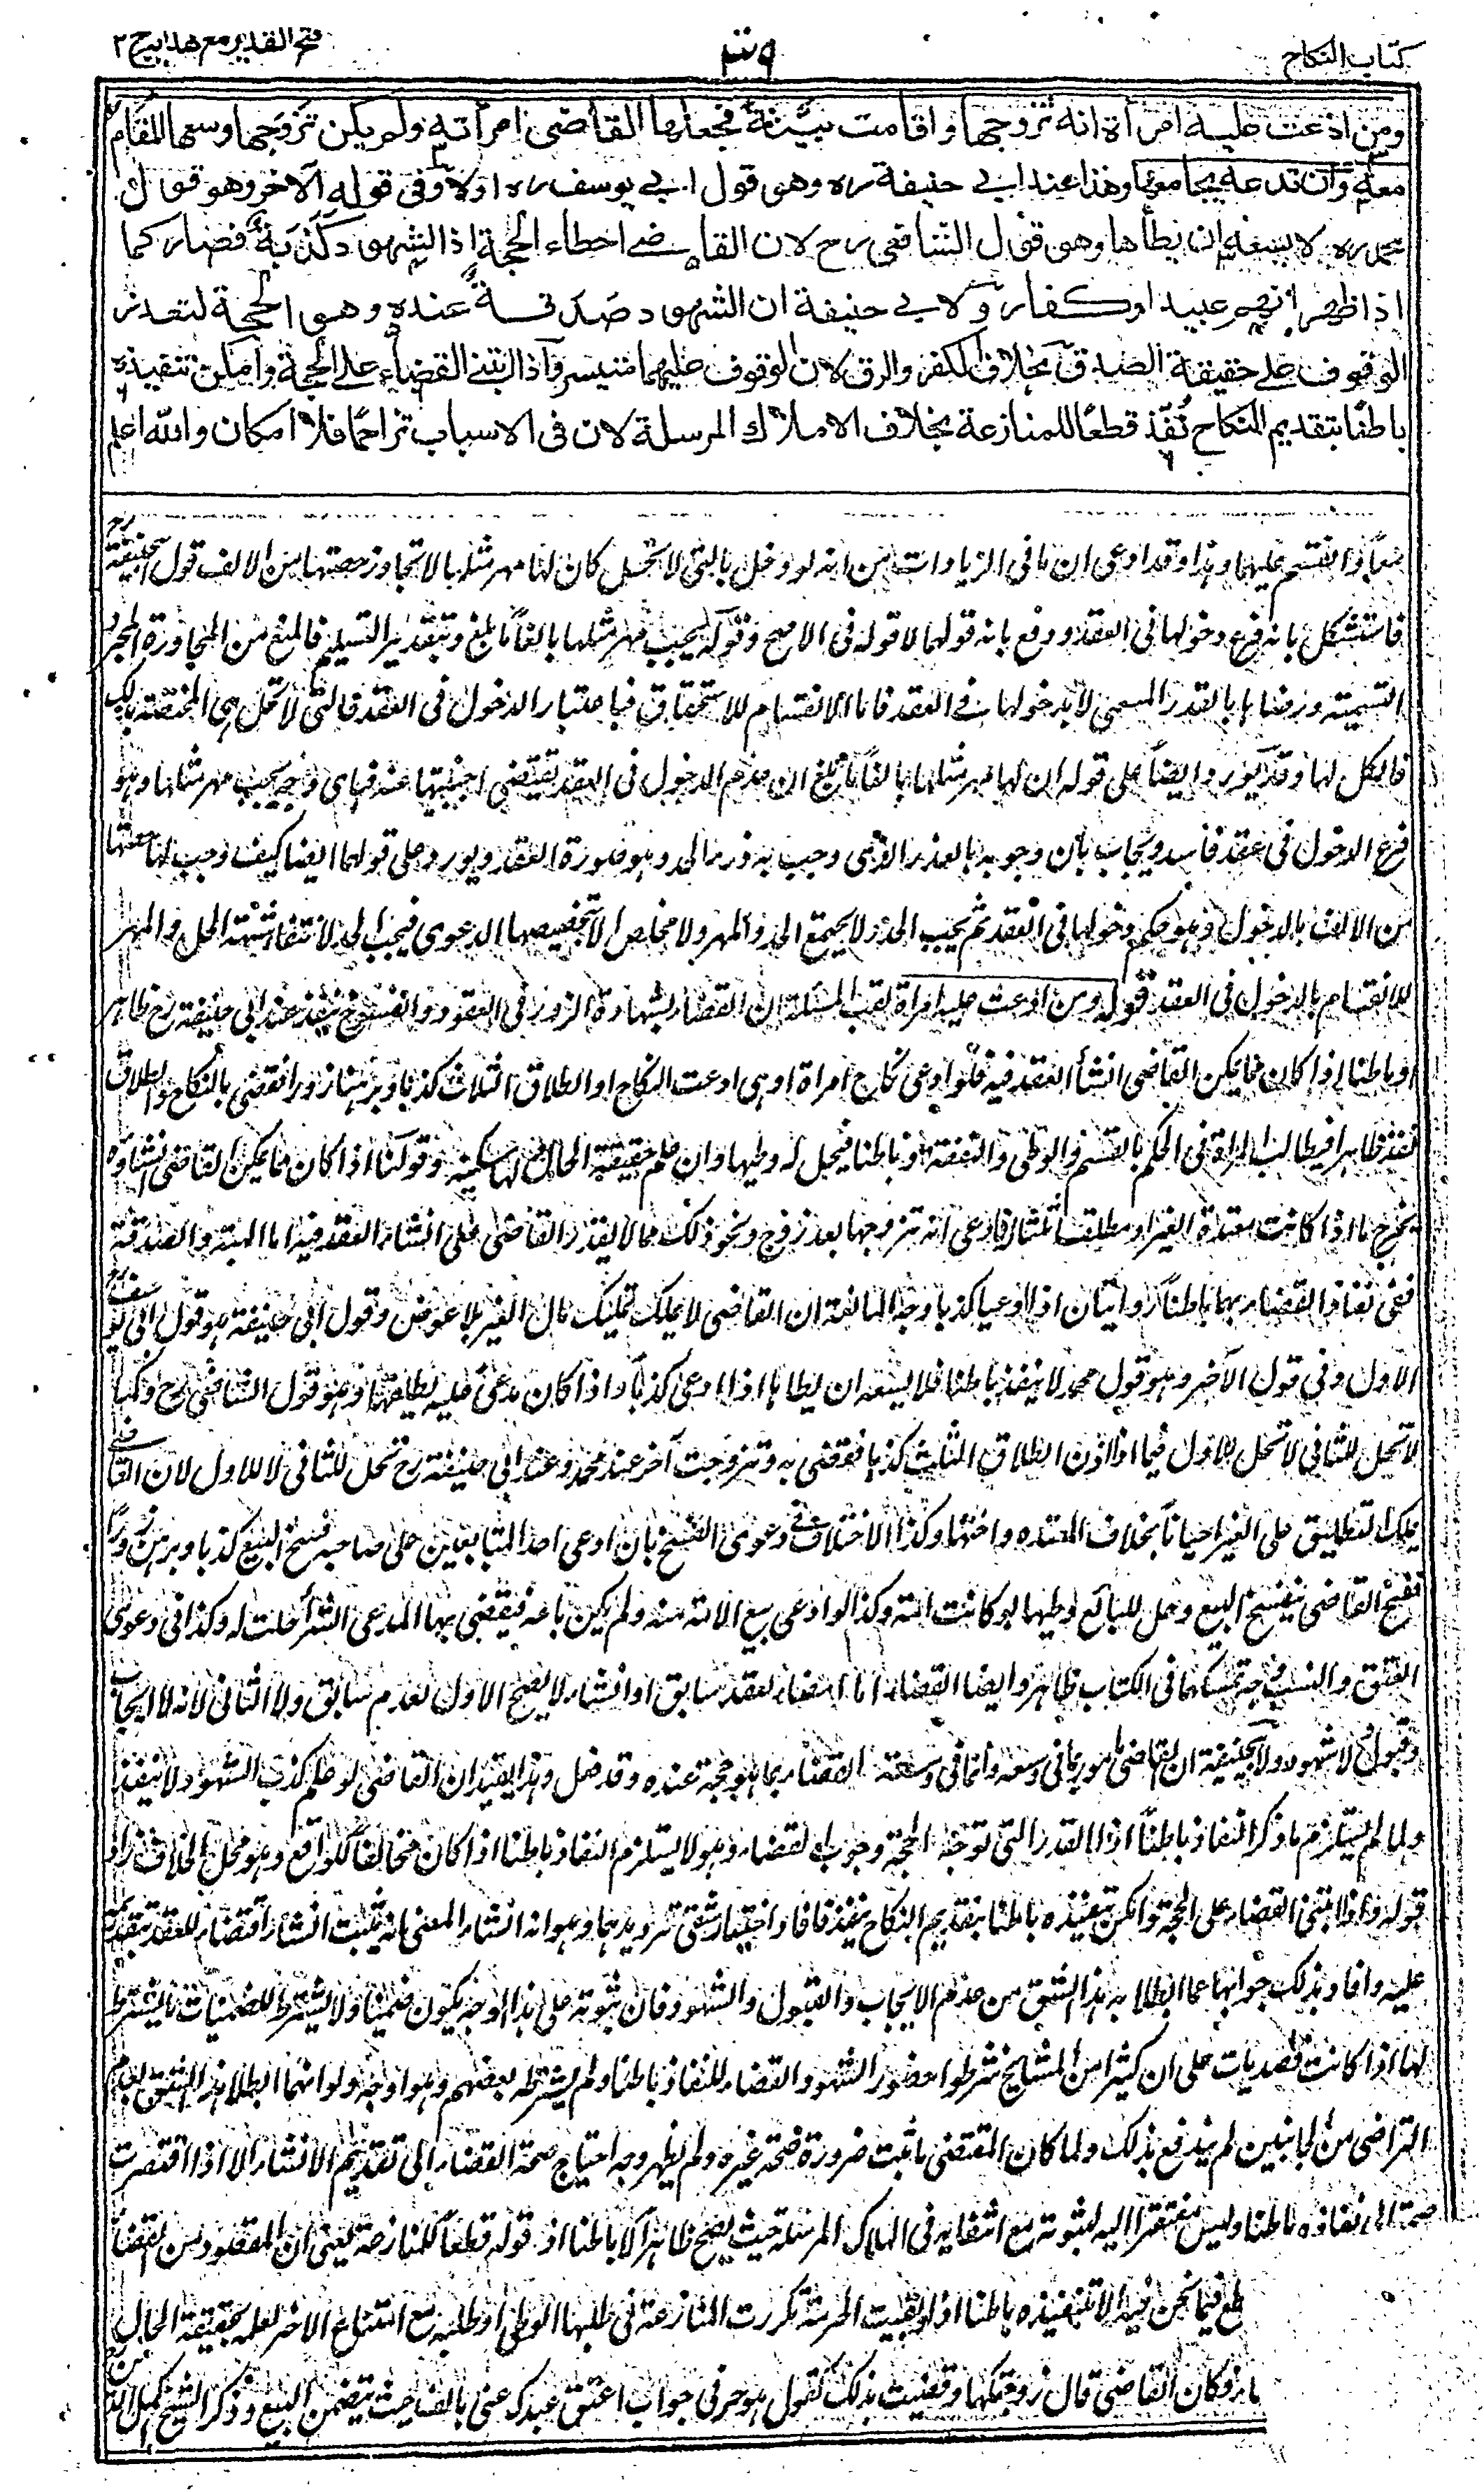 كتاب النكاح
٣٩
فتح القدير مع هدايه ج ٢
ومن ادعت عليه امرأة انه تزوجها واقامت بينة فجعلها القاضى امرأته ولم يكن تزوجها وسعها المقام
معه وان تدعه يجامعها وهذا عند ابي حنيفة ره وهو قول ابي يوسف ره اولا وفى قوله الاخر وهو قول
محمد ره لا يسعه ان يطأها وهو قول الشافعى رح لان القاضي اخطاء الحجة اذ الشهود كذبة فصار كما
اذا ظهر انهم عبيد او كفار ولابي حنيفة ان الشهود صدقة عنده وهو الحجة لتعذر
الوقوف على حقيقة الصدق بخلاف الكفر والرق لان الوقوف عليهما متيسر واذا ابتنى القضاء على الحجة وامكن تنفيذه
باطنا بتقديم النكاح نفذ قطعا للمنازعة بخلاف الاملاك المرسلة لان فى الاسباب تزاحما فلا امكان والله اعلم
وهذا وقد ادعى ان ما فى الزيادات من انه لو دخل بالتى لا تحل كان لها مهر مثلها لا تجاوز حصتها من الالف قول ابيحنيفة رح
فاستشكل بانه فرع دخولها فى العقد ودفع بانه قولهما لا قوله فى الاصح وقوله يجب مهر مثلها بالغا ما بلغ وبتقدير التسليم فالمنع من المجاوزة لمجرد
التسمية ورضاها بالقدر المسمى لا بدخولها فى العقد فاما الانقسام للاستحقاق فباعتبار الدخول فى العقد فالتى لا تحل هى المختصة بذلك
فالكل لها وقد يورد ايضا على قوله ان لها مهر مثلها بالغا ما بلغ ان عدم الدخول فى العقد يقتضى اجنبيتها عنه فباى وجه يجب مهر مثلها وهو
فرع الدخول فى عقد فاسد ويجاب بان وجوبه بالعذر الذى وجب به درء الحد وهو صورة العقد ويورد على قولهما ايضا كيف وجب لها حصتها
من الالف بالدخول وهو حكم دخولها فى العقد ثم يجب الحد ولا يجتمع الحد والمهر ولا مخلص الا بتخصيصهما الدعوى فيجب الحد لانتفاء شبهة الحل والمهر
للانقسام بالدخول فى العقد قوله ومن ادعت عليه امرأة لقب المسئلة ان القضاء بشهادة الزور فى العقود والفسوخ ينفذ عند ابى حنيفة رح ظاهرا
وباطنا اذا كان مما يمكن القاضى انشاء العقد فيه فلو ادعى نكاح امرأة او هى ادعت النكاح او الطلاق الثلاث كذبا وبرهنا زورا فقضى بالنكاح والطلاق
نفذ ظاهرا فيطالب المرأة فى الحكم بالقسم والوطى والنفقة وباطنا فيحل له وطيها وان علم حقيقة الحال ولها تمكينه وقولنا اذا كان مما يمكن القاضى انشاؤه
يخرج ما اذا كانت معتدة الغير او مطلقته ثلثا فادعى انه تزوجها بعد زوج ونحو ذلك مما لا يقدر القاضى على انشاء العقد فيه اما الهبة والصدقة
ففى نفاذ القضاء بهما باطنا روايتان اذا ادعيا كذبا وجه المانعة ان القاضى لا يملك تمليك مال الغير بلا عوض وقول ابى حنيفة هو قول ابى يوسف رح
الاول وفى قول الآخر وهو قول محمد لا ينفذ باطنا فلا يسعه ان يطأها اذا ادعى كذبا واذا كان مدعى عليه يطلقها وهو قول الشافعى رح وكما
لا تحل للثانى لا تحل للاول فيما اذا الطلاق الثلث كذبا فقضى به وتزوجت آخر عند محمد وعند ابى حنيفة رح تحل للثانى لا للاول لان القاضى
يملك التطليق على الغير احيانا بخلاف المعتدة واختها وكذا الاختلاف فى دعوى الفسخ بان ادعى احد المتبايعين على صاحبه فسخ البيع كذبا وبرهن زورا
ففسخ القاضى ينفسخ البيع وحل للبائع وطيها لو كانت امة وكذا لو ادعى بيع الامة منه ولم يكن باعه فيقضى بها المدعى الشراء حلت له وكذا فى دعوى
العتق والنسب وجه تمسكهما فى الكتاب ظاهر وايضا القضاء اما امضاء لعقد سابق او انشاء لا يصح الاول لعدم سابق ولا الثانى لانه لا ايجاب
وقبول ولا شهود ولابيحنيفة ان القاضى مامور بما فى وسعه وانما فى وسعه القضاء بما هو حجة عنده وقد فعل وهذا يفيد ان القاضى لو علم كذب الشهود لا ينفذ
ولما لم يستلزم ما ذكر النفاذ باطنا اذ القدر الذى توجبه الحجة وجوب القضاء وهو لا يستلزم النفاذ باطنا اذا كان مخالفا للواقع وهو محل الخلاف زاد
قوله واذا ابتنى القضاء على الحجة وامكن تنفيذه باطنا بتقديم النكاح ينفذ فافاد اختيار شقى ترديدهما وهو انه انشاء المعنى انه يثبت انشاء اقتضاء للعقد بتقديمه
عليه وافاد بذلك جوابهما عما ابطلا به هذا الشق من عدم الايجاب والقبول والشهود فان ثبوته على هذا الوجه يكون ضمنيا ولا يشترط للضمنيات ما يشترط
لها اذا كانت قصديات على ان كثيرا من المشايخ شرطوا حضور الشهود القضاء للنفاذ باطنا ولم يشترطه بعضهم وهو اوجه ولو انهما ابطلا هذا الشق بعدم
التراضى من الجانبين لم يندفع بذلك ولما كان المقتضى ما ثبت ضرورة صحة غيره ولم يظهر وجه احتياج صحة القضاء الى تقديم الانشاء الا اذا افتقرت
صحته الى نفاذه باطنا وليس مفتقرا اليه لثبوته مع انتفائه فى الاملاك المرسلة حيث يصح ظاهرا لا باطنا زاد قوله قطعا للمنازعة يعنى ان المقصود من القضاء
قطع فيما نحن فيه الا بتنفيذه باطنا اذ لو بقيت الحرمة تكررت المنازعة فى طلبها الوطى او طلبه مع امتناع الاخر لعلمه بحقيقة الحال
فكان القاضى قال زوجتكها وقضيت بذلك كقول هو حر فى جواب اعتق عبدك عنى بالف حيث يتضمن البيع وذكر الشيخ اكمل الدين